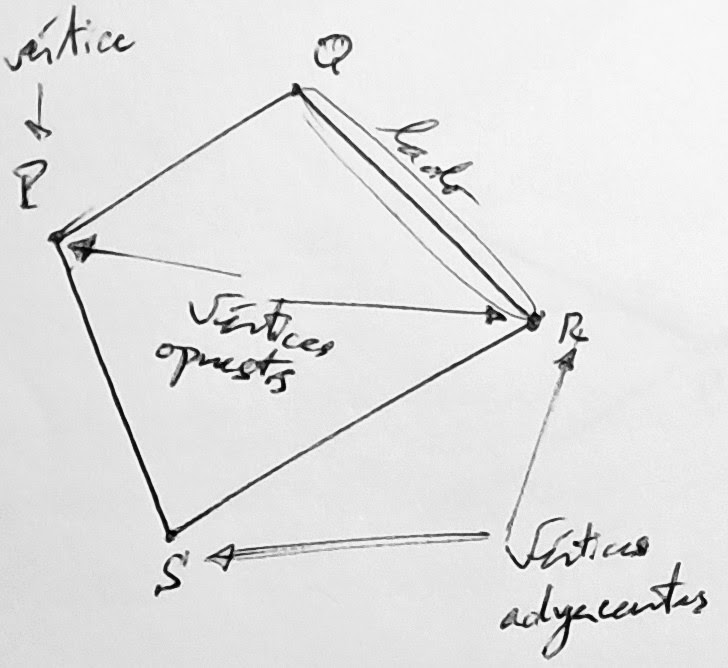 vértice
Q
P
lado
Vértices
opuestos
R
S
Vértices
adyacentes